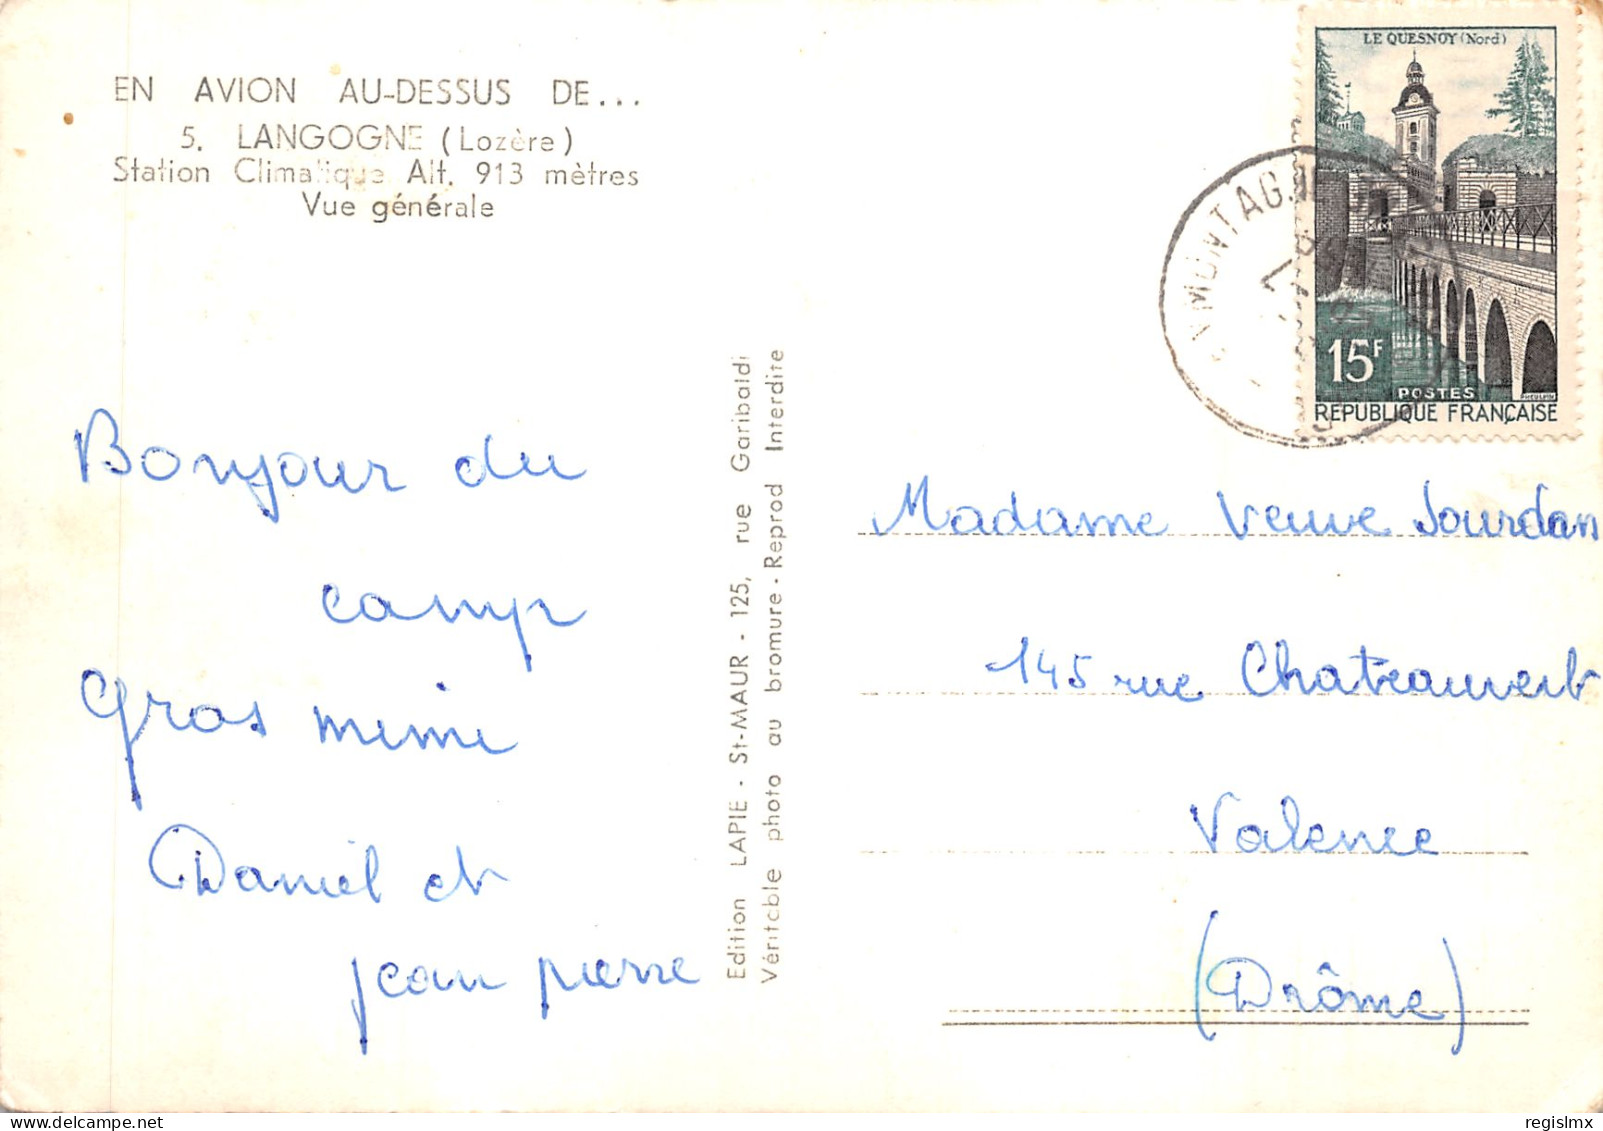 EN AVION AU-DESSUS DE...
5. LANGOGNE (Lozère)
Station Climatique Alt. 913 mètres
Vue générale
Bonjour du
camp
Gros mimi
Daniel et
jean pierre
Edition LAPIE - St-MAUR - 125, rue Garibaldi
Véritable photo au bromure - Reprod Interdite
LE QUESNOY (Nord)
15F
POSTES
RÉPUBLIQUE FRANÇAISE
Madame Veuve Jourdan
145 rue Chateauvert
Valence
(Drôme)
regislmx